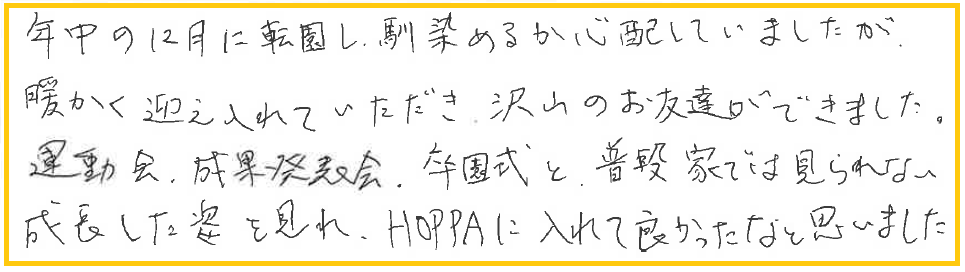 年中の12月に転園し、馴染めるか心配していましたが、
暖かく迎え入れていただき、沢山のお友達ができました。
運動会、成果発表会、卒園式と、普段家では見られない
成長した姿を見れ、HOPPAに入れて良かったなと思いました